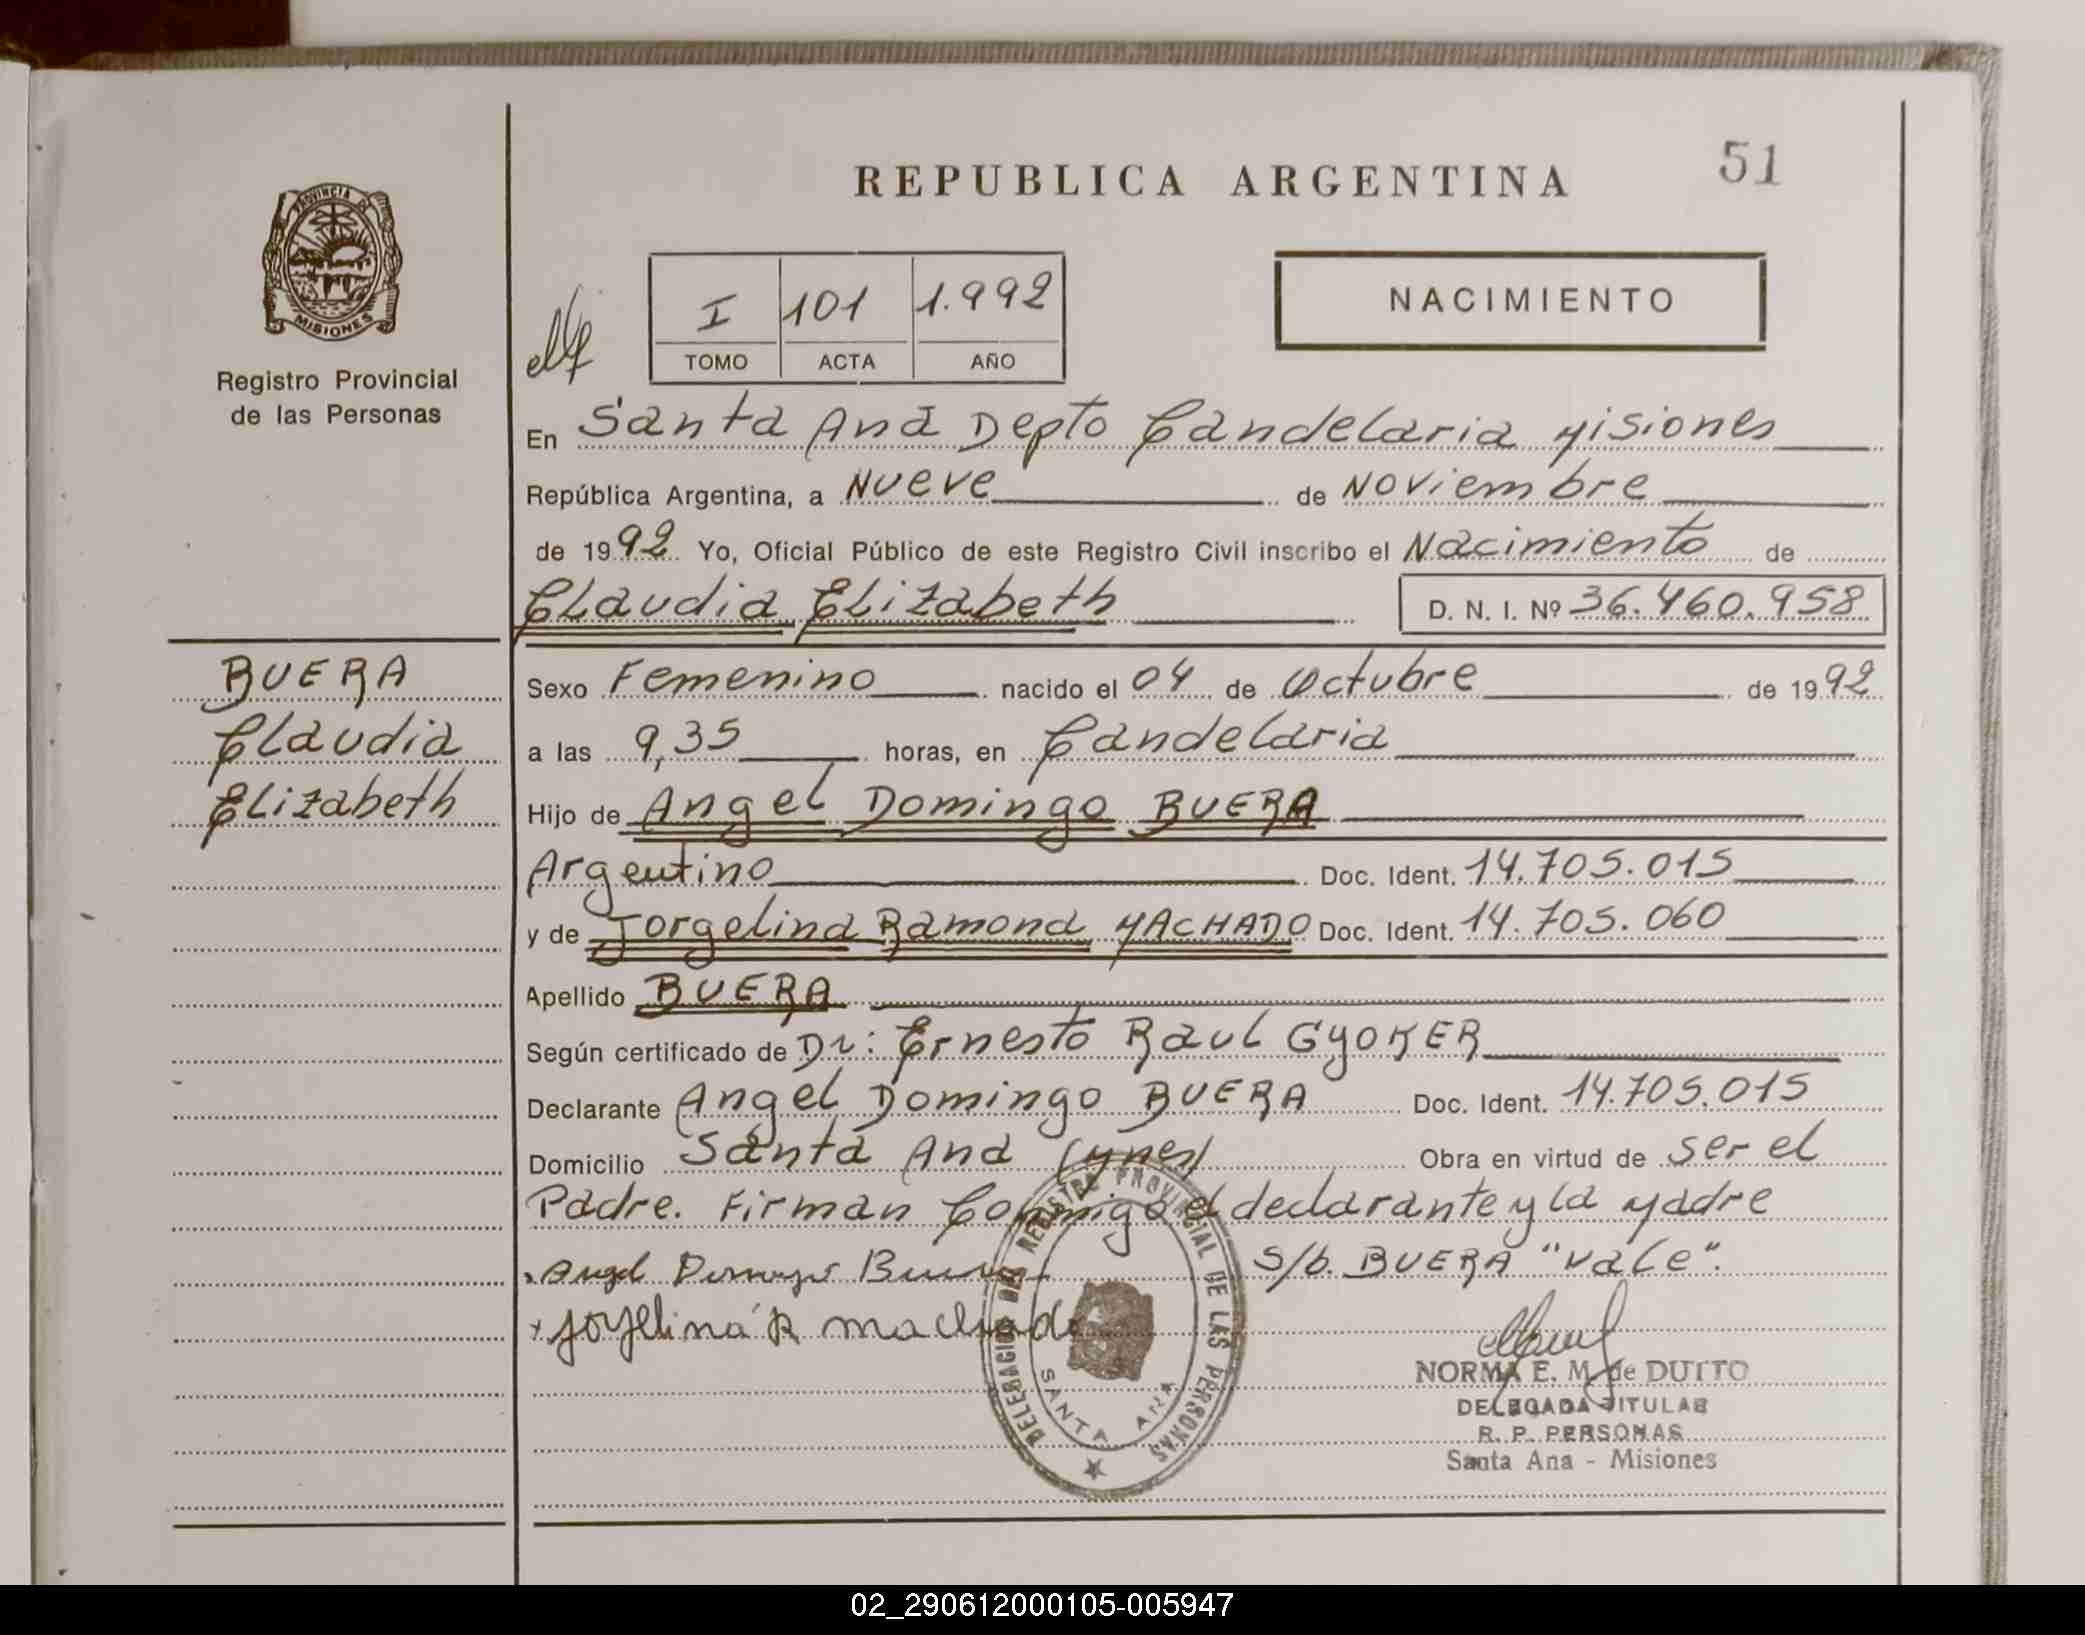 REPUBLICA ARGENTINA
51
PROVINCIA DE
MISIONES
Registro Provincial
de las Personas
I 101 1.992
TOMO ACTA AÑO
NACIMIENTO
En Santa Ana Depto Candelaria Misiones
República Argentina, a Nueve de Noviembre
de 1992 Yo, Oficial Público de este Registro Civil inscribo el Nacimiento de
Claudia Elizabeth D. N. I. Nº 36.460.958
BUERA
Claudia
Elizabeth
Sexo Femenino nacido el 04 de Octubre de 1992
a las 9,35 horas, en Candelaria
Hijo de Angel Domingo BUERA
Argentino Doc. Ident. 14.705.015
y de Jorgelina Ramona MACHADO Doc. Ident. 14.705.060
Apellido BUERA
Según certificado de Dr: Ernesto Raul GYOKER
Declarante Angel Domingo BUERA Doc. Ident. 14.705.015
Domicilio Santa Ana (Mnes) Obra en virtud de ser el
Padre. Firman Conmigo el declarante y la Madre
Angel Domingo Buera S/b. BUERA "Vale".
x Jorgelina R machado
DELEGACION DEL REGISTRO PROVINCIAL DE LAS PERSONAS
SANTA ANA
NORMA E. M. de DUTTO
DELEGADA TITULAR
R. P. PERSONAS
Santa Ana - Misiones
02_290612000105-005947